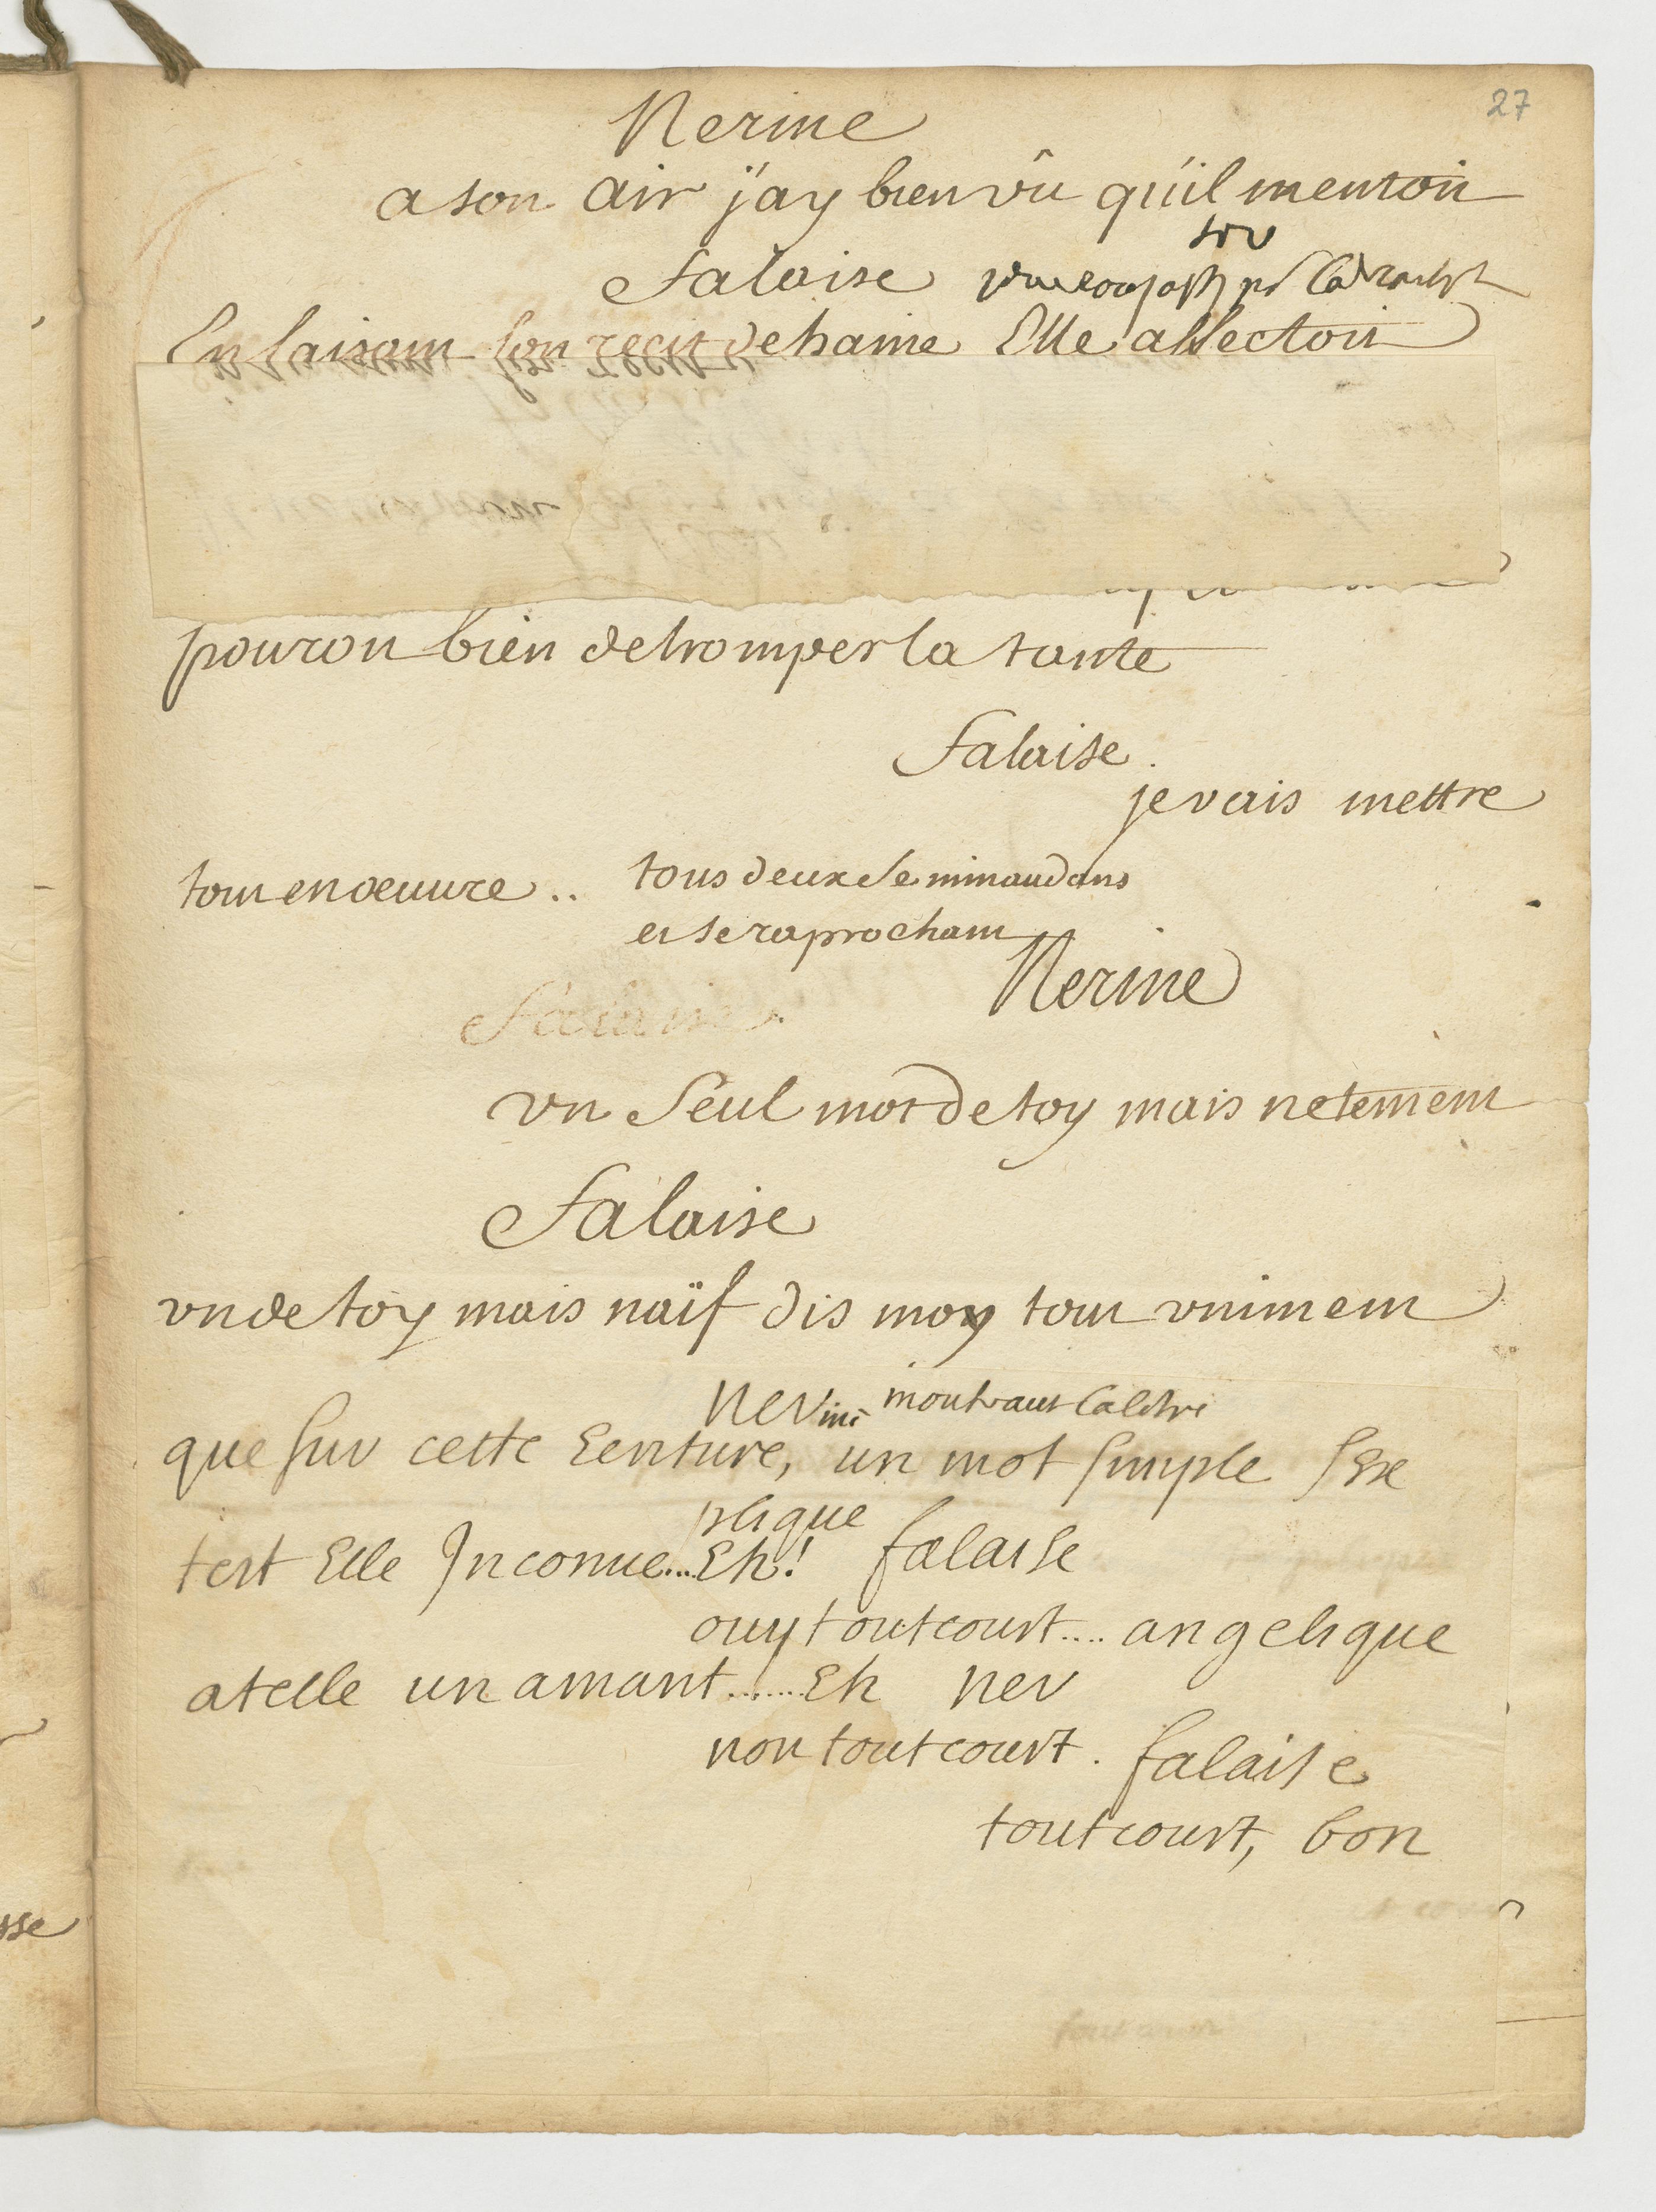 27
Nerine
a son air j'ay bien vû qu'il mentoit
falaise
En faisant son recit de haine Elle affectoit
pouront bien detromper la tante
falaise.
je vais mettre
tout en œuvre .. tous deux se minaudans
et se raprochant
Nerine
falaise
un seul mot de toy mais netement
falaise
un de toy mais naïf dis moy tout uniment
Nerine montrant la lettre
que sur cette Ecriture, un mot simple s'Ex
plique
test Elle Inconnue.... Eh! falaise
ouy tout court.... angelique
atelle un amant....... Eh ner
non tout court. falaise
tout court, bon
sse